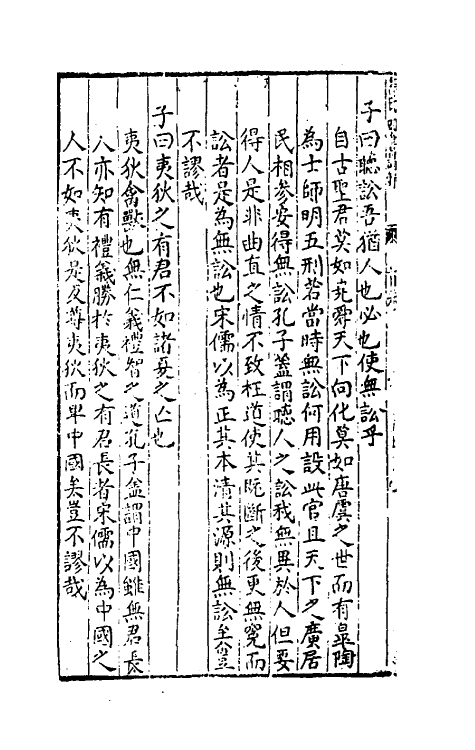 子曰聽訟吾猶人也必也使無訟乎
自古聖君莫如堯舜天下向化莫如唐虞之世而有皋陶
為士師明五刑若當時無訟何用設此官且天下之廣居
民相參安得無訟孔子蓋謂聽人之訟我無異於人但要
得人是非曲直之情不致枉道使其既斷之後更無冤而
訟者是為無訟也宋儒以為正其本清其源則無訟矣豈
不謬哉
子曰夷狄之有君不如諸夏之亡也
夷狄禽獸也無仁義禮智之道孔子蓋謂中國雖無君長
人亦知有禮義勝於夷狄之有君長者宋儒以為中國之
人不如夷狄是反尊夷狄而卑中國矣豈不謬哉